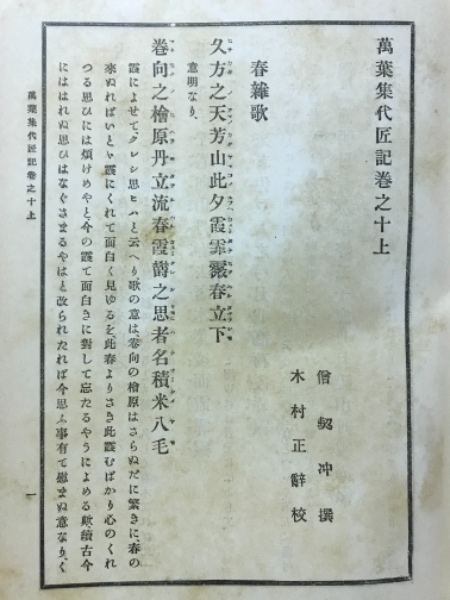 萬葉集代匠記卷之十上
僧契冲撰
木村正辭校
春雜歌
久方之天芳山此夕霞霏霺春立下
意明なり、
卷向之檜原丹立流春霞欝之思者名積米八毛
霞によせて、クレシ思ヒハと云へり、歌の意は、卷向の檜原はさらぬだに繁きに、春の
來ぬればいとゞ霞にくれて面白く見ゆるを、此春よりさき此霞むばかり心のくれ
つる思ひには煩けめやと、今の霞て面白きに對して忘たるやうによめる歟、續古今
にははれぬ思ひはなぐさまるやはと改られたれば今思ふ事有て慰まぬ意なり、く
萬葉集代匠記卷之十上
一